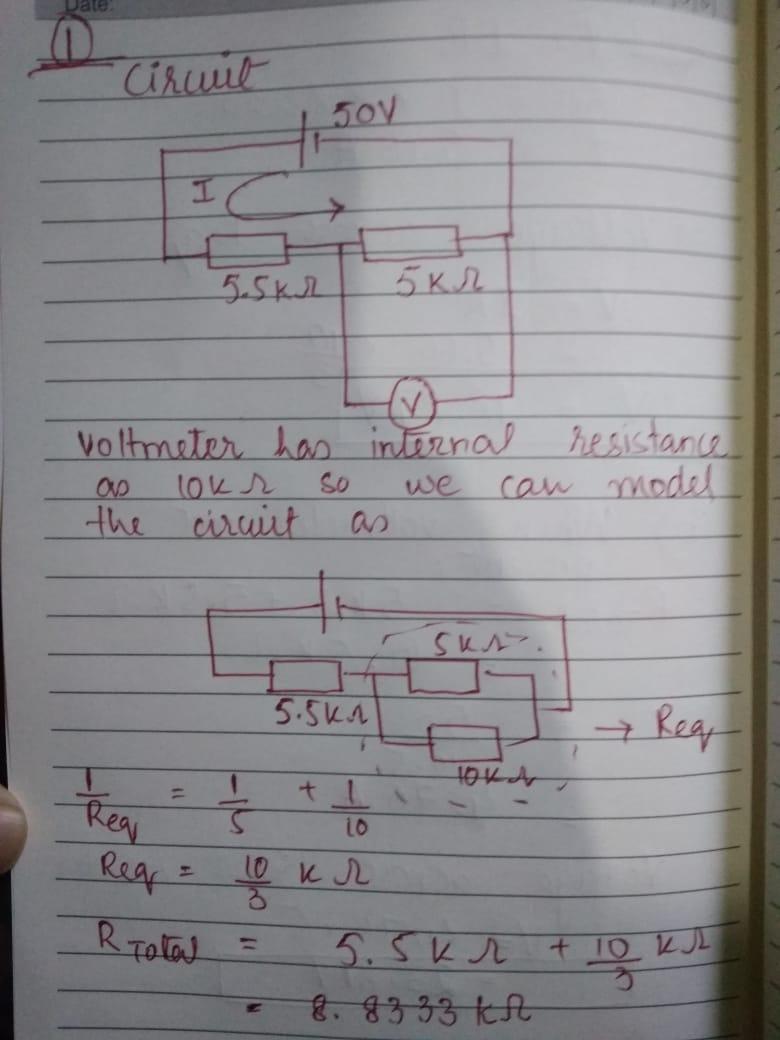 Date:
①
Circuit
50V
I
5.5KΩ
5KΩ
V
Voltmeter has internal resistance
as 10KΩ so we can model
the circuit as
5KΩ
5.5KΩ
→ Req
10KΩ
1/Req = 1/5 + 1/10
Req = 10/3 KΩ
R Total = 5.5KΩ + 10/3 KΩ
= 8.8333 KΩ